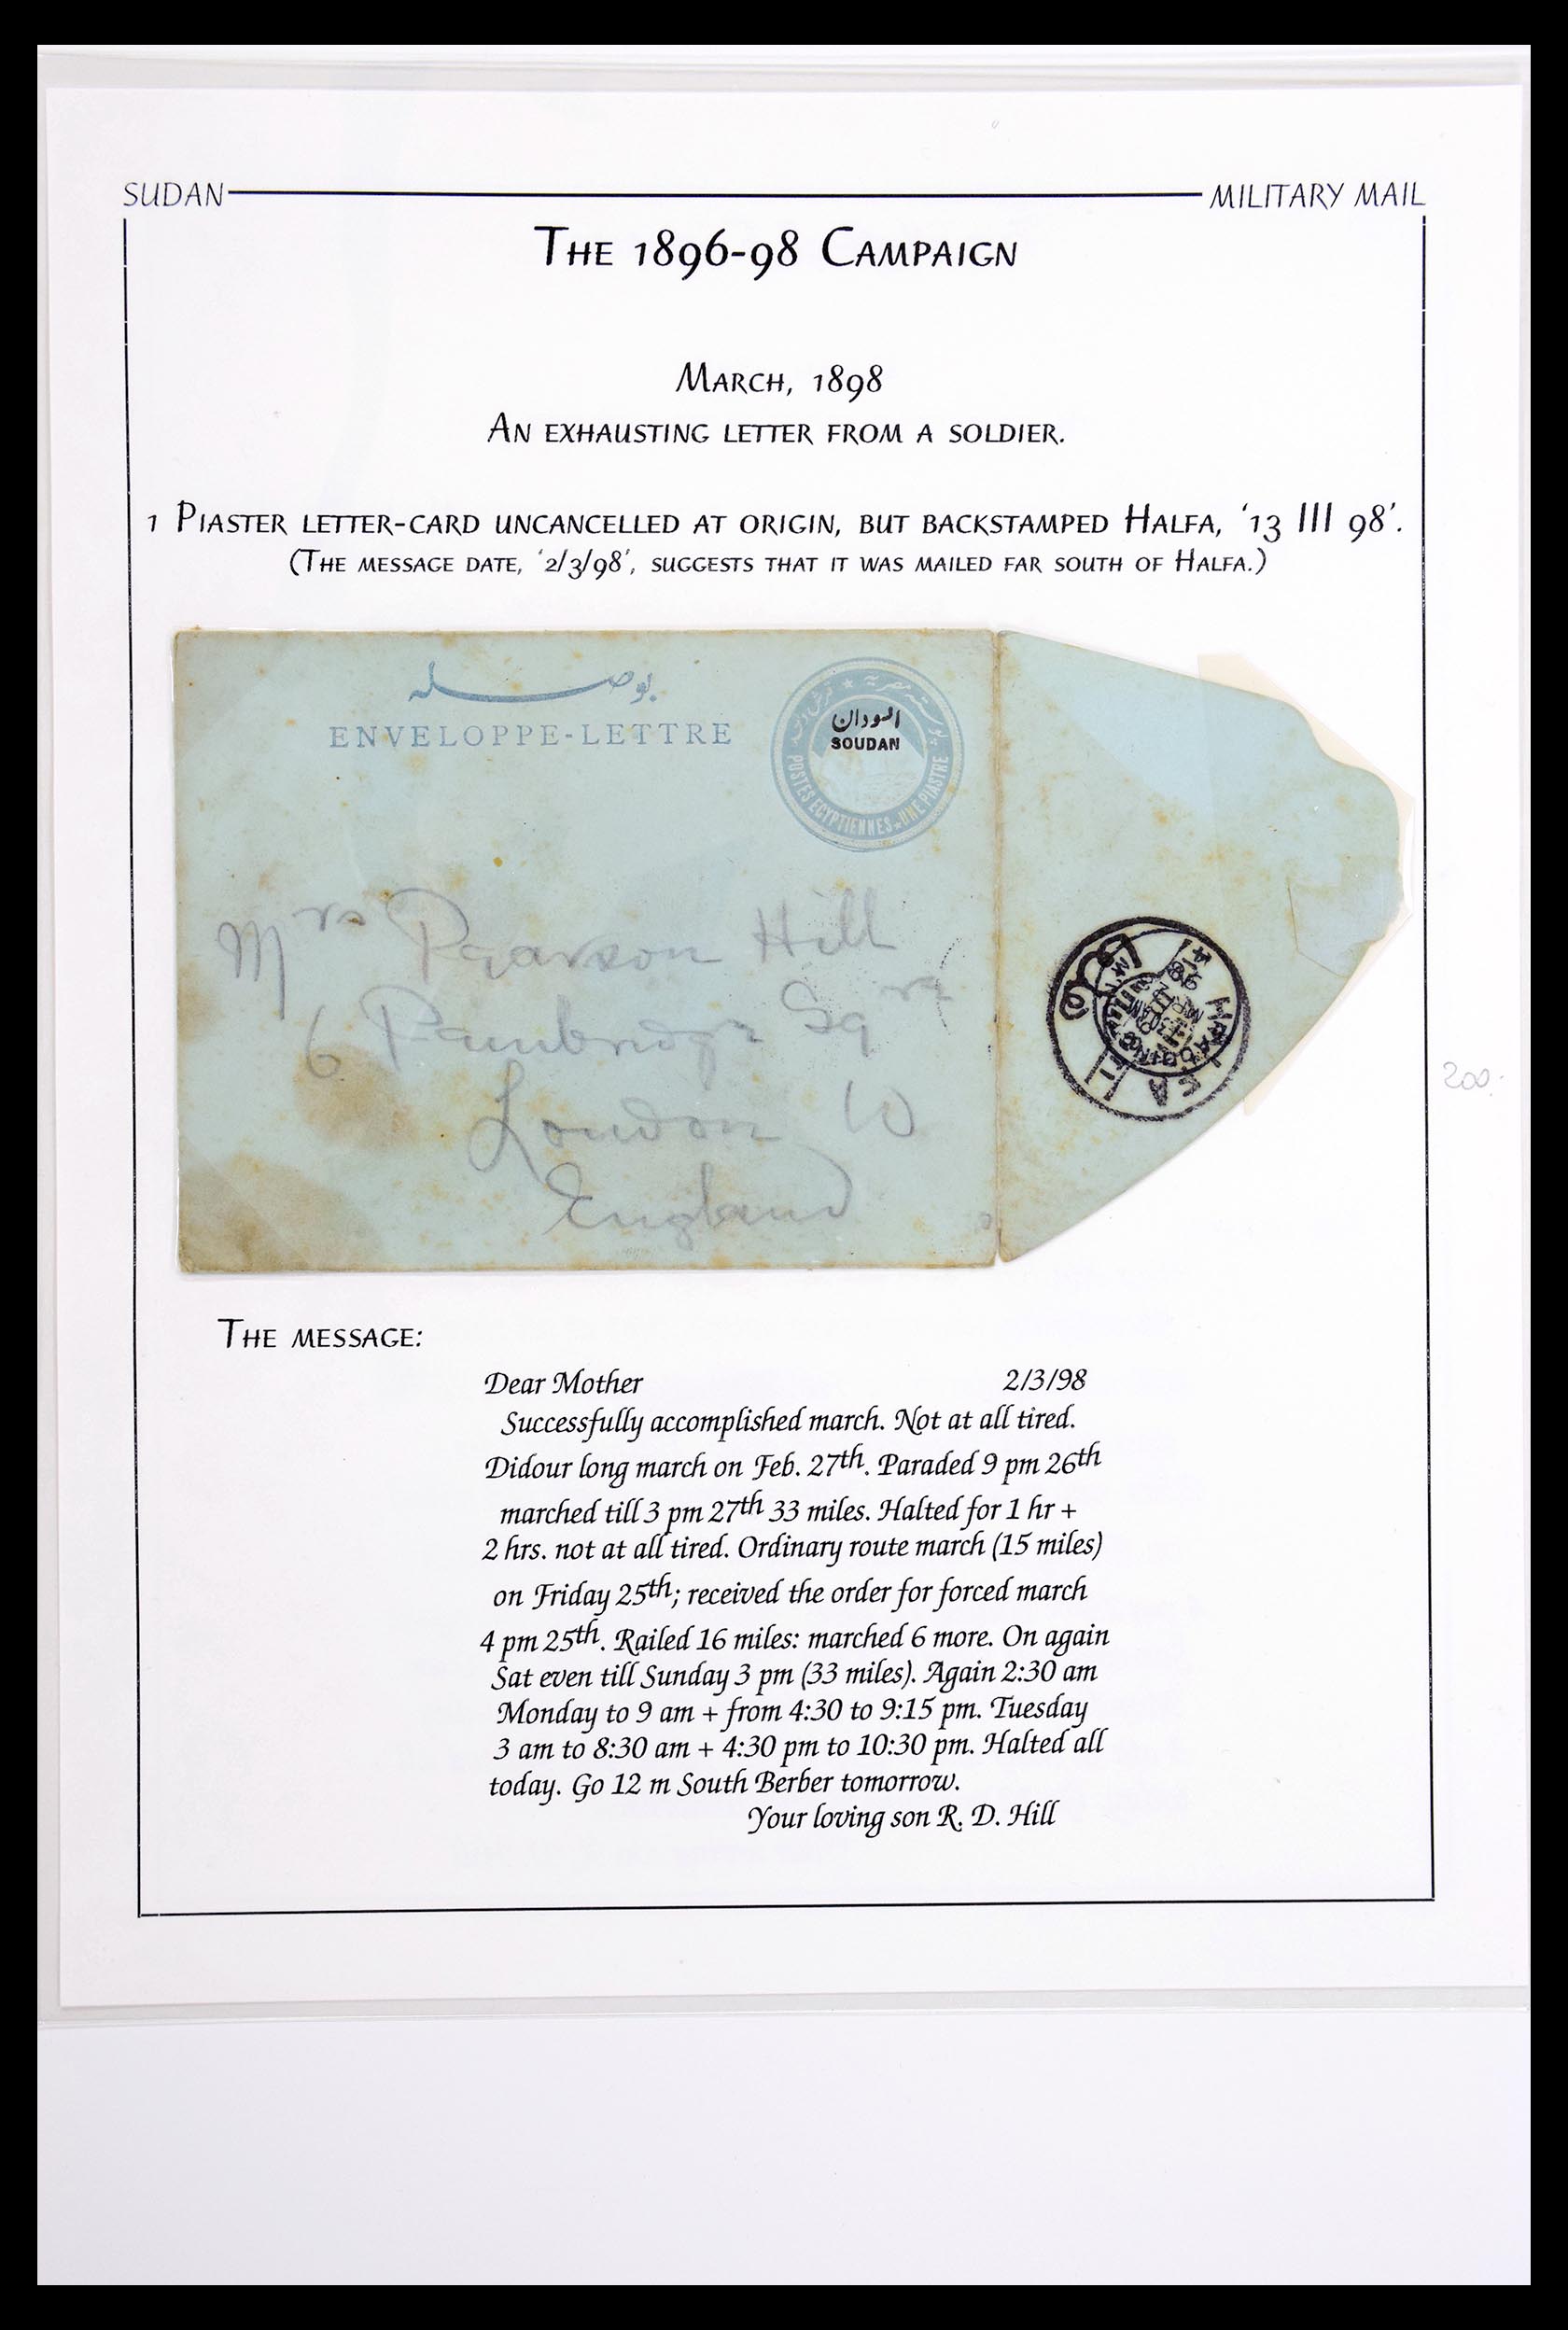 SUDAN MILITARY MAIL
THE 1896-98 CAMPAIGN
MARCH, 1898
AN EXHAUSTING LETTER FROM A SOLDIER.
1 PIASTER LETTER-CARD UNCANCELLED AT ORIGIN, BUT BACKSTAMPED HALFA, '13 III 98'.
(THE MESSAGE DATE, '2/3/98', SUGGESTS THAT IT WAS MAILED FAR SOUTH OF HALFA.)
بوصله
ENVELOPPE-LETTRE
بوستة مصرية
السودان
SOUDAN
POSTES EGYPTIENNES UNE PIASTRE
Mrs Pearson Hill
6 Pembridge Sqre
London W
England
HALFA
98
200.
THE MESSAGE:
Dear Mother 2/3/98
Successfully accomplished march. Not at all tired.
Didour long march on Feb. 27th. Paraded 9 pm 26th
marched till 3 pm 27th 33 miles. Halted for 1 hr +
2 hrs. not at all tired. Ordinary route march (15 miles)
on Friday 25th; received the order for forced march
4 pm 25th. Railed 16 miles: marched 6 more. On again
Sat even till Sunday 3 pm (33 miles). Again 2:30 am
Monday to 9 am + from 4:30 to 9:15 pm. Tuesday
3 am to 8:30 am + 4:30 pm to 10:30 pm. Halted all
today. Go 12 m South Berber tomorrow.
Your loving son R. D. Hill